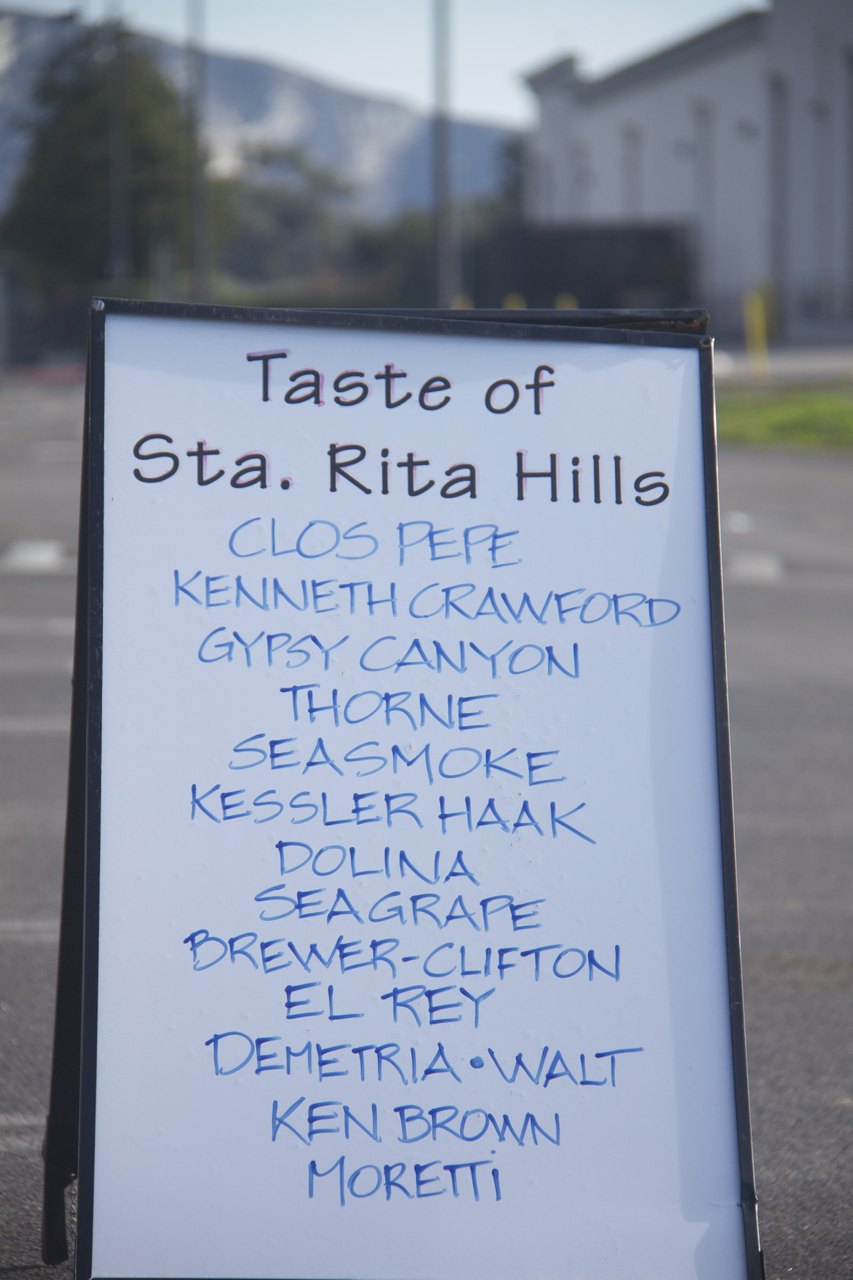 Taste of
Sta. Rita Hills
CLOS PEPE
KENNETH CRAWFORD
GYPSY CANYON
THORNE
SEASMOKE
KESSLER HAAK
DOLINA
SEAGRAPE
BREWER-CLIFTON
EL REY
DEMETRIA • WALT
KEN BROWN
MORETTi